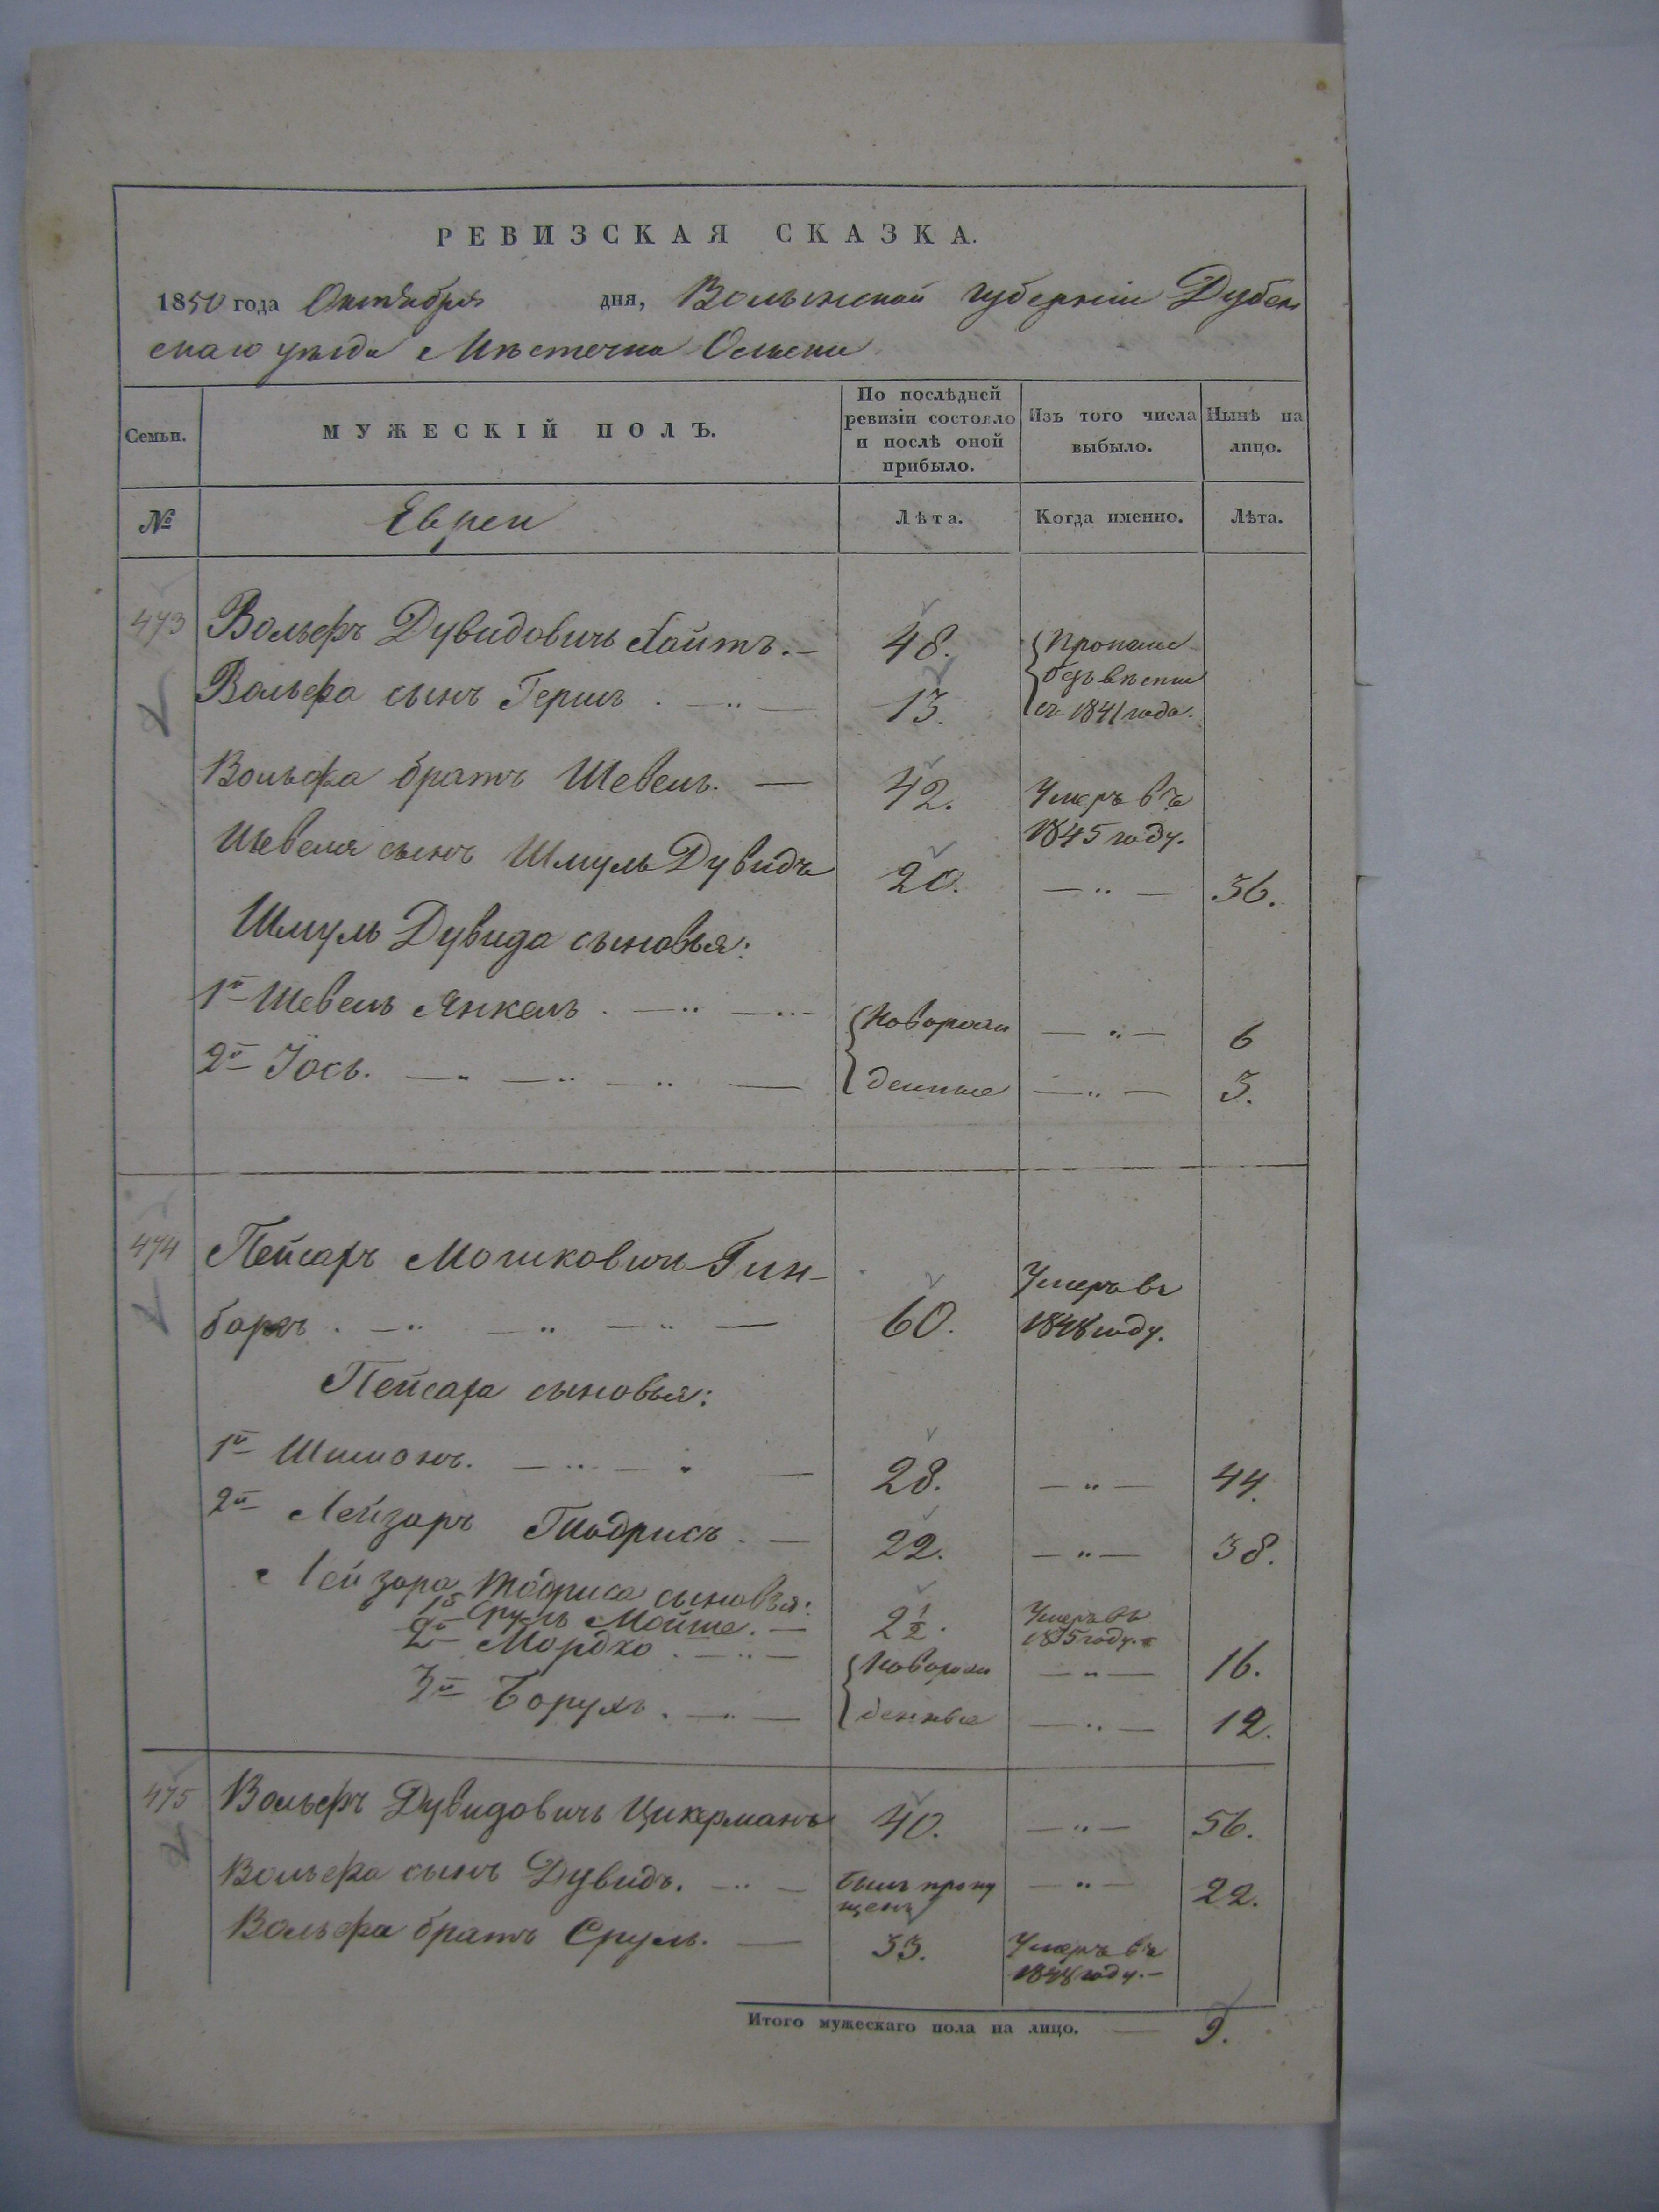 РЕВИЗСКАЯ СКАЗКА.
1850 года Октября дня, Волынской губернiи Дубен
скаго уѣзда Мѣстечка
Семьи.
МУЖЕСКІЙ ПОЛЪ.
По послѣдней ревизіи состояло и послѣ оной прибыло.
Изъ того числа выбыло.
Нынѣ на лицо.
№ Евреи Лѣта. Когда именно. Лѣта.
473 Вольфъ Дувидовичъ 48. Пропали
Вольфа сынъ Гершъ 13. безъ вѣсти
съ 1841 года.
Вольфа братъ Шевель. 42. Умеръ въ
1845 году.
Шевеля сынъ Шмуль Дувидъ 20. 36.
Шмуль Дувида сыновья:
1й Шевель Янкель. Новорож 6
2й Іось. денные 3.
474 Пейсахъ Мошковичъ Гин-
бархъ. 60. Умеръ въ
1848 году.
Пейсаха сыновья:
1й Шимонъ. 28. 44.
2й Лейзаръ Тодрисъ. 22. 38.
Лейзара Тодриса сыновья:
1й Сруль Мойше. 2 1/2. Умеръ въ
1835 году.
2й Мордхо. Новорож 16.
3й Борухъ. денные 12.
475 Вольфъ Дувидовичъ Цикерманъ 40. 56.
Вольфа сынъ Дувидъ. Былъ пропу 22.
щенъ
Вольфа братъ Сруль. 33. Умеръ въ
1848 году.
Итого мужескаго пола на лицо. 9.